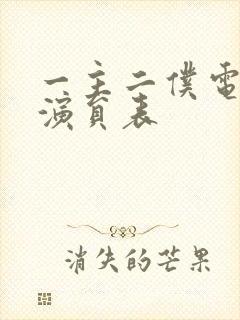 一主二僕電
演員表
消失的芒果